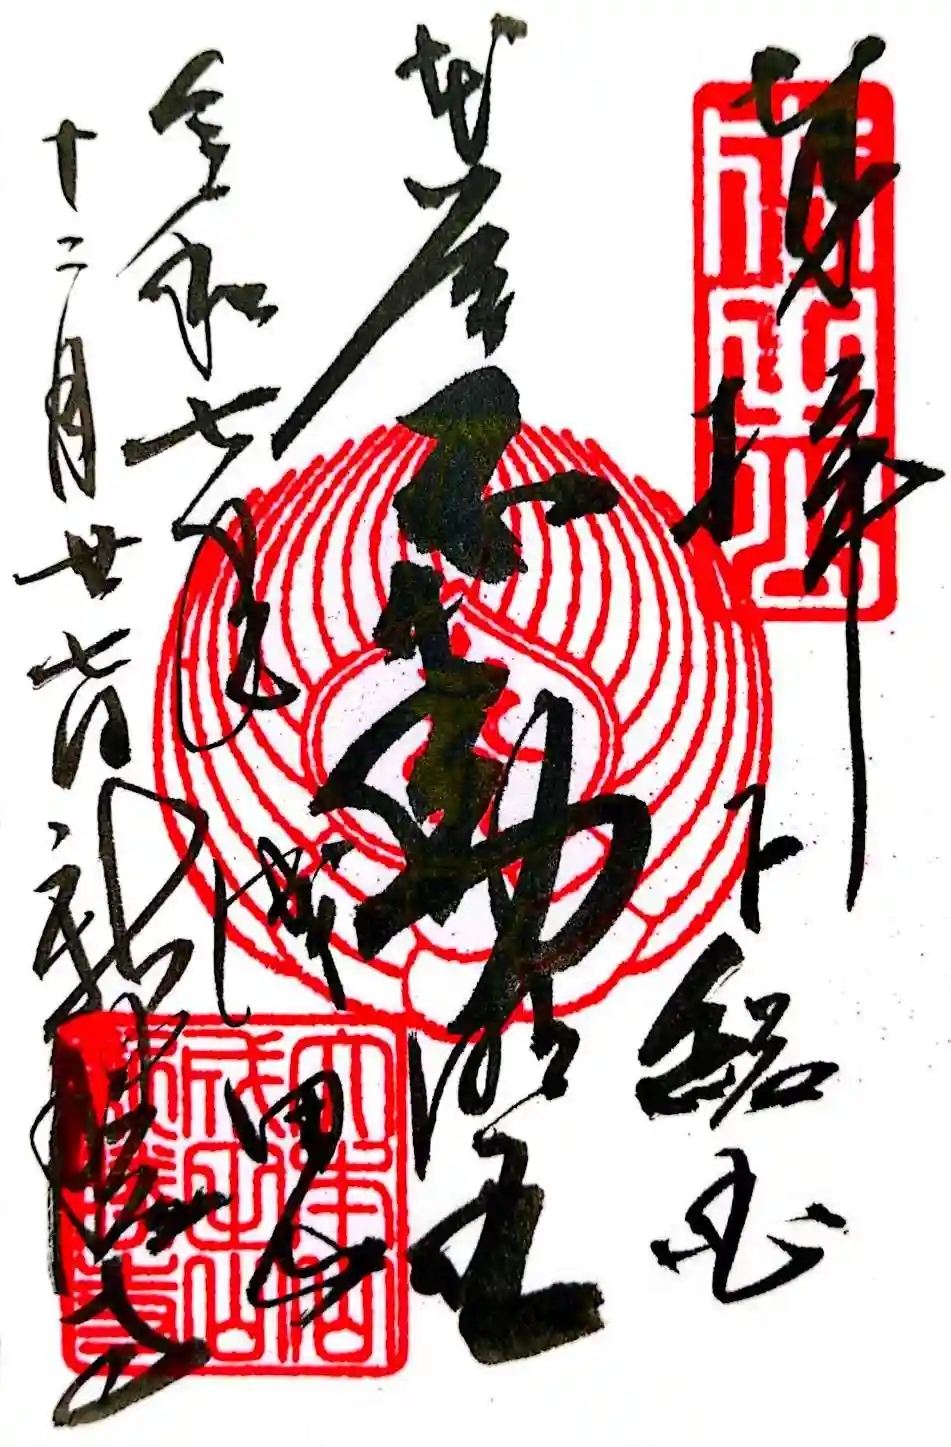 奉拝 下総国
不動明王
令和七年 成田山
十二月廿七日 新勝寺
成田山
新勝寺